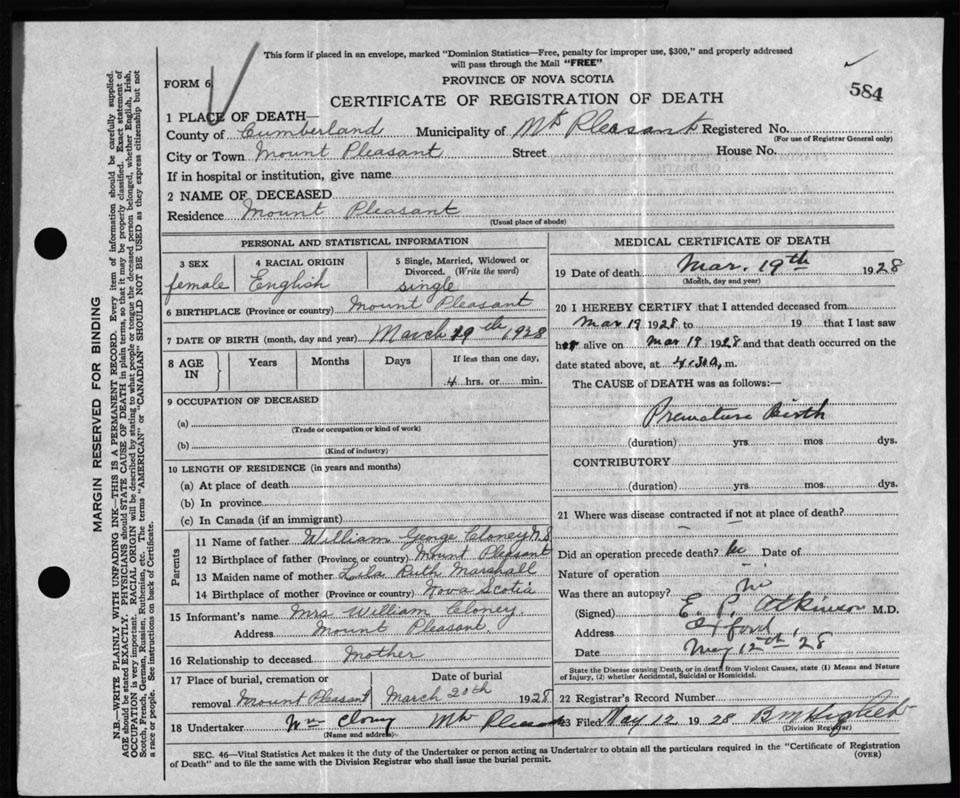 This form if placed in an envelope, marked "Dominion Statistics—Free, penalty for improper use, $300," and properly addressed
will pass through the Mail "FREE"
FORM 6
PROVINCE OF NOVA SCOTIA
584
CERTIFICATE OF REGISTRATION OF DEATH
1 PLACE OF DEATH—
County of Cumberland Municipality of Mt Pleasant Registered No.
(For use of Registrar General only)
City or Town Mount Pleasant Street House No.
If in hospital or institution, give name
2 NAME OF DECEASED
Residence Mount Pleasant
(Usual place of abode)
PERSONAL AND STATISTICAL INFORMATION
3 SEX
female
4 RACIAL ORIGIN
English
5 Single, Married, Widowed or
Divorced. (Write the word)
single
6 BIRTHPLACE (Province or country) Mount Pleasant
7 DATE OF BIRTH (month, day and year) March 19th, 1928
8 AGE IN
Years Months Days
If less than one day,
4 hrs. or min.
9 OCCUPATION OF DECEASED
(a)
(Trade or occupation or kind of work)
(b)
(Kind of industry)
10 LENGTH OF RESIDENCE (in years and months)
(a) At place of death
(b) In province
(c) In Canada (if an immigrant)
Parents
11 Name of father William George Cloney N.S
12 Birthplace of father (Province or country) Mount Pleasant
13 Maiden name of mother Lila Ruth Marshall
14 Birthplace of mother (Province or country) Nova Scotia
15 Informant's name Mrs William Cloney
Address Mount Pleasant.
16 Relationship to deceased Mother
17 Place of burial, cremation or
removal Mount Pleasant
Date of burial
March 20th 1928
18 Undertaker Wm Clony Mt Pleasant
(Name and address)
MEDICAL CERTIFICATE OF DEATH
19 Date of death Mar. 19th 1928
(Month, day and year)
20 I HEREBY CERTIFY that I attended deceased from
Mar 19 1928 to 19 that I last saw
her alive on Mar 19 1928 and that death occurred on the
date stated above, at 4.30a, m.
The CAUSE of DEATH was as follows:—
Premature Birth
(duration) yrs. mos dys.
CONTRIBUTORY
(duration) yrs. mos. dys.
21 Where was disease contracted if not at place of death?
Did an operation precede death? no Date of
Nature of operation
Was there an autopsy? no
(Signed) E. P. Atkinson M.D.
Address Oxford
Date May 12th '28
State the Disease causing Death, or in death from Violent Causes, state (1) Means and Nature
of Injury, (2) whether Accidental, Suicidal or Homicidal.
22 Registrar's Record Number
23 Filed May 12 1928
(Division Registrar)
SEC. 46—Vital Statistics Act makes it the duty of the Undertaker or person acting as Undertaker to obtain all the particulars required in the "Certificate of Registration
of Death" and to file the same with the Division Registrar who shall issue the burial permit.
(OVER)
MARGIN RESERVED FOR BINDING
N.B.—WRITE PLAINLY WITH UNFADING INK—THIS IS A PERMANENT RECORD. Every item of information should be carefully supplied.
AGE should be stated EXACTLY. PHYSICIANS should STATE CAUSE OF DEATH in plain terms, so that it may be properly classified. Exact statement of
OCCUPATION is very important. RACIAL ORIGIN will be described by stating to what people or tongue the deceased person belonged, whether English, Irish,
Scotch, French, German, Russian, Ruthenian, etc. The terms "AMERICAN" or "CANADIAN" SHOULD NOT BE USED as they express citizenship but not
a race or people. See instructions on back of Certificate.